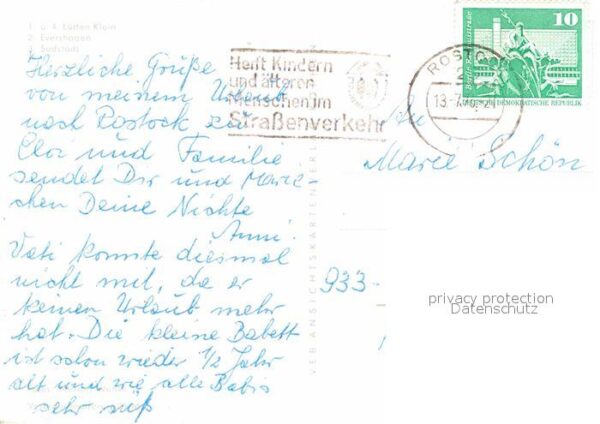 1. u. 4. Lütten Klein
2. Evershagen
3. Südstadt
Herzliche Grüße
von meinem Urlaub
nach Rostock
und Familie
sendet Dir und Marie-
chen Deine Nichte
Anni.
Vati konnte diesmal
nicht mit, da er
keinen Urlaub mehr
hat. Die kleine Babett
ist schon wieder 1/2 Jahr
alt und wie alle Babis
sehr süß
Helft Kindern
und älteren
Menschen im
Straßenverkehr
ROSTOCK
10
Berlin, Rathausstraße
DEUTSCHE DEMOKRATISCHE REPUBLIK
An
Marie Schön
933-
VEB ANSICHTSKARTENVER
privacy protection
Datenschutz